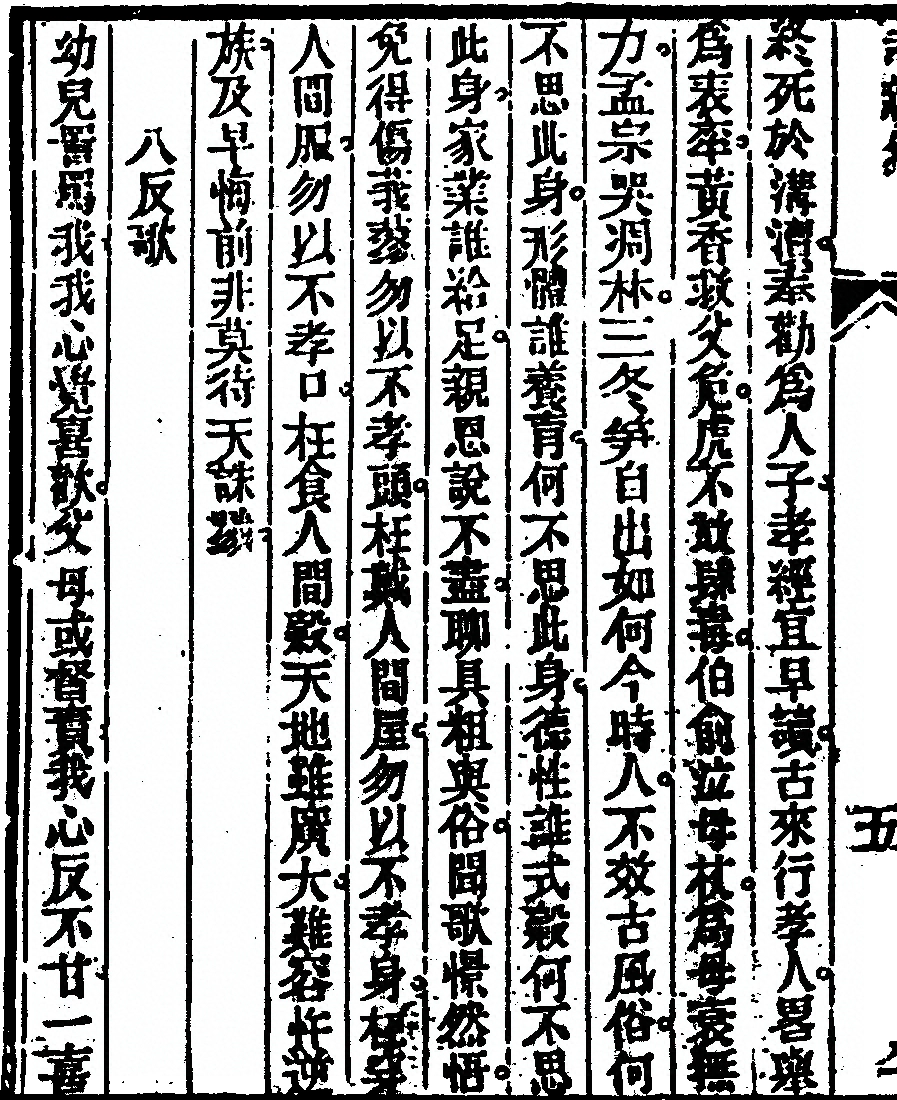 終死於溝瀆奉勸爲人子孝經宜早讀古來行孝人畧舉
爲表率黃香救父危虎不敢肆毒伯俞泣母杖爲母衰無
力孟宗哭凋林三冬笋自出如何今時人不效古風俗何
不思此身形體誰養育何不思此身德性誰式穀何不思
此身家業誰給足親恩說不盡聊具粗與俗聞歌憬然悟
免得傷莪蓼勿以不孝頭枉戴人間屋勿以不孝身枉
人間服勿以不孝口枉食人間穀天地雖廣大難容忤逆
族及早悔前非莫待天誅
八反歌
幼兒詈我我心覺喜歡父母或督責我心反不甘一喜
五